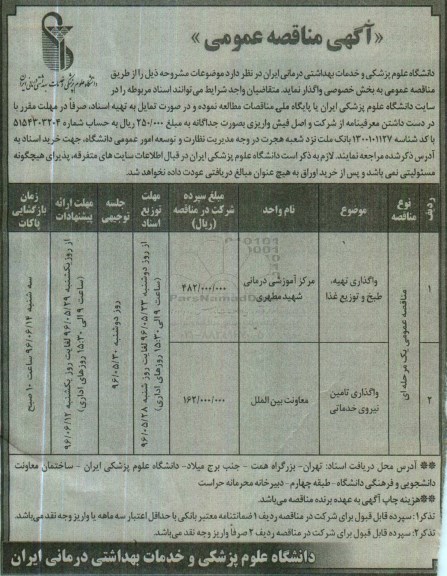 «آگهی مناقصه عمومی»
دانشگاه علوم پزشکی و خدمات بهداشتی درمانی ایران
دانشگاه علوم پزشکی و خدمات بهداشتی درمانی ایران در نظر دارد موضوعات مشروحه ذیل را از طریق
مناقصه عمومی به بخش خصوصی واگذار نماید. متقاضیان واجد شرایط می توانند اسناد مربوطه را در
سایت دانشگاه علوم پزشکی ایران یا پایگاه ملی مناقصات مطالعه نموده و در صورت تمایل به تهیه اسناد، صرفاً در مهلت مقرر با
در دست داشتن معرفینامه از شرکت و اصل فیش واریزی بصورت جداگانه به مبلغ ۲۵۰/۰۰۰ ریال به حساب شماره ۵۱۵۴۳۰۳۲۰۴
با کد شناسه ۱۳۰۰۰۱۰۱۱۲۷ بانک ملت نزد شعبه هجرت در وجه مدیریت نظارت و توسعه امور عمومی دانشگاه، جهت خرید اسناد به
آدرس ذکر شده مراجعه نمایند. لازم به ذکر است دانشگاه علوم پزشکی ایران در قبال اطلاعات سایت های متفرقه، پذیرای هیچگونه
مسئولیتی نمی باشد و پس از خرید اوراق به هیچ عنوان مبالغ دریافتی عودت داده نخواهد شد.
ردیف
نوع مناقصه
موضوع
نام واحد
مبلغ سپرده شرکت در مناقصه (ریال)
مهلت توزیع اسناد
جلسه توجیهی
مهلت ارائه پیشنهادات
زمان بازگشایی پاکات
۱
مناقصه عمومی یک مرحله ای
واگذاری تهیه، طبخ و توزیع غذا
مرکز آموزشی درمانی شهید مطهری
۴۸۲/۰۰۰/۰۰۰
از روز دوشنبه ۹۶/۰۵/۲۳ لغایت روز شنبه ۹۶/۰۵/۲۸ (ساعت ۹ الی ۱۵:۳۰ روزهای اداری)
روز دوشنبه ۹۶/۰۵/۳۰
از روز یکشنبه ۹۶/۰۵/۲۹ لغایت روز یکشنبه ۹۶/۰۶/۱۲ (ساعت ۹ الی ۱۵:۳۰ روزهای اداری)
سه شنبه ۹۶/۰۶/۱۴ ساعت ۱۰ صبح
۲
واگذاری تامین نیروی خدماتی
معاونت بین الملل
۱۶۲/۰۰۰/۰۰۰
** آدرس محل دریافت اسناد: تهران- بزرگراه همت - جنب برج میلاد- دانشگاه علوم پزشکی ایران - ساختمان معاونت
دانشجویی و فرهنگی دانشگاه - طبقه چهارم - دبیرخانه محرمانه حراست
**هزینه چاپ آگهی به عهده برنده مناقصه می‌باشد.
تذکر۱: سپرده قابل قبول برای شرکت در مناقصه ردیف ۱ ضمانتنامه معتبر بانکی با حداقل اعتبار سه ماهه یا واریز وجه نقد می‌باشد.
تذکر۲: سپرده قابل قبول برای شرکت در مناقصه ردیف ۲ صرفاً واریز وجه نقد می‌باشد.
دانشگاه علوم پزشکی و خدمات بهداشتی درمانی ایران